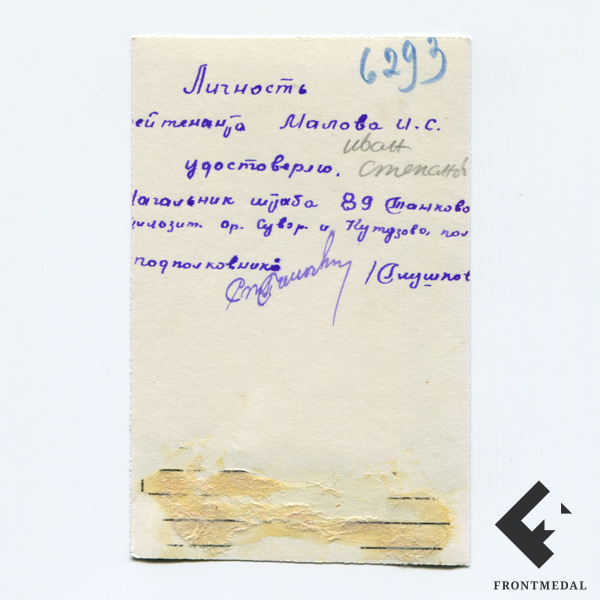 6293
Личность
ейтенанта Малова И.С.
иван
удостоверяю. степано
Начальник штаба 89 Танково
ор. Сувор. и Кутузова, пол
подполковник
FRONTMEDAL